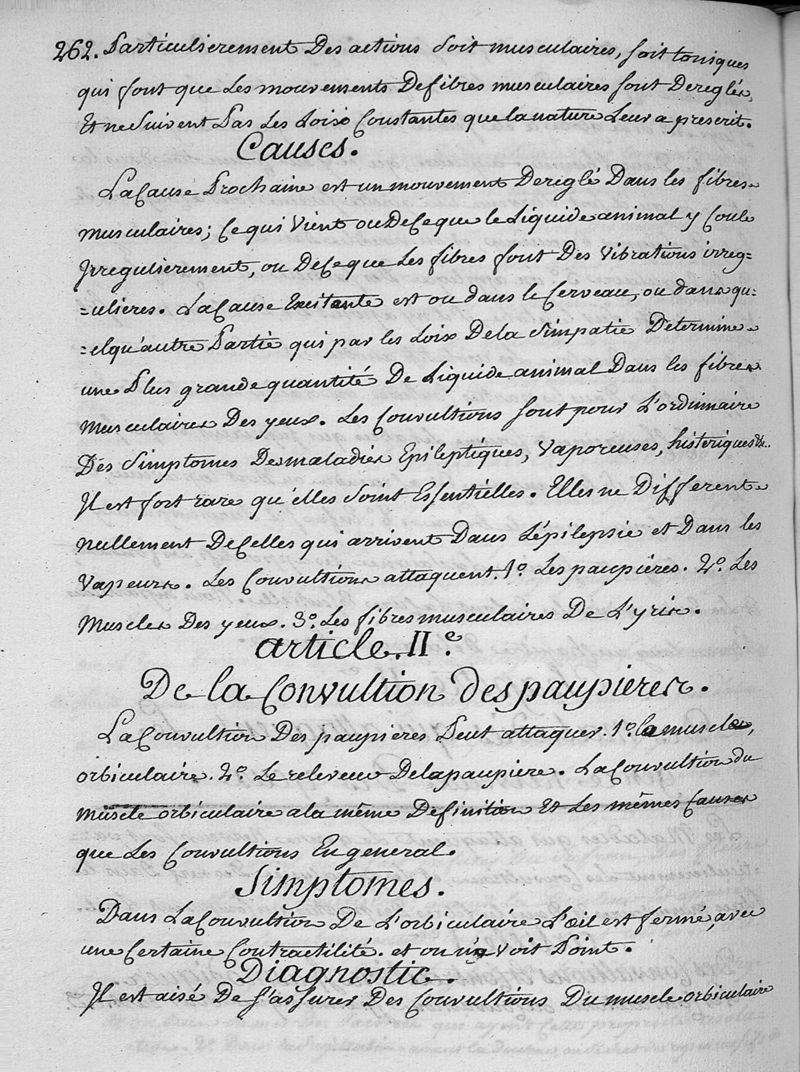 262. Particulierement Des actions Soit musculaires, soit toniques
qui font que Les mouvements De fibres musculaires sont Dereglés,
Et ne Suivent Pas Les Loix Constantes que la nature Leur a prescrit.
Causes.
La Cause Prochaine est un mouvement Dereglé Dans les fibres
musculaires; Ce qui Vient ou De Ce que le Liquide animal y Coule
Irregulierement, ou De Ce que Les fibres font Des Vibrations irreg=
=ulieres. La Cause Excitante est ou dans le Cerveau, ou dans qu=
=elqu'autre Partie qui par les Loix De la Simpatie Determine
une Plus grande quantité De Liquide animal Dans les fibres
Musculaires Des yeux. Les Convultions sont pour L'ordinnaire
Des Simptomes Des maladies Epileptiques, Vaporeuses, histeriques &c.
Il est fort rare qu'elles Soint Essentielles. Elles ne Different
nullement De Celles qui arrivent Dans L'épilepsie et Dans les
Vapeurs. Les Convultions attaquent. 1º. Les paupières. 2º. Les
Muscles Des yeux. 3º. Les fibres musculaires De L'yris.
article. IIe
De la Convultion des paupieres.
La Convultion Des paupières Peut attaquer. 1º. le muscle,
orbiculaire. 2º. Le releveur De la paupiere. La Convultion du
muscle orbiculaire a la même Definition Et Les mêmes Causes
que Les Convultions En general.
Simptomes.
Dans La Convultion De L'orbiculaire L'œil est fermé, avec
une Certaine Contractilité. et on n'y Voit Point.
Diagnostic.
Il est aisé De s'assurer Des Convultions Du muscle orbiculaire